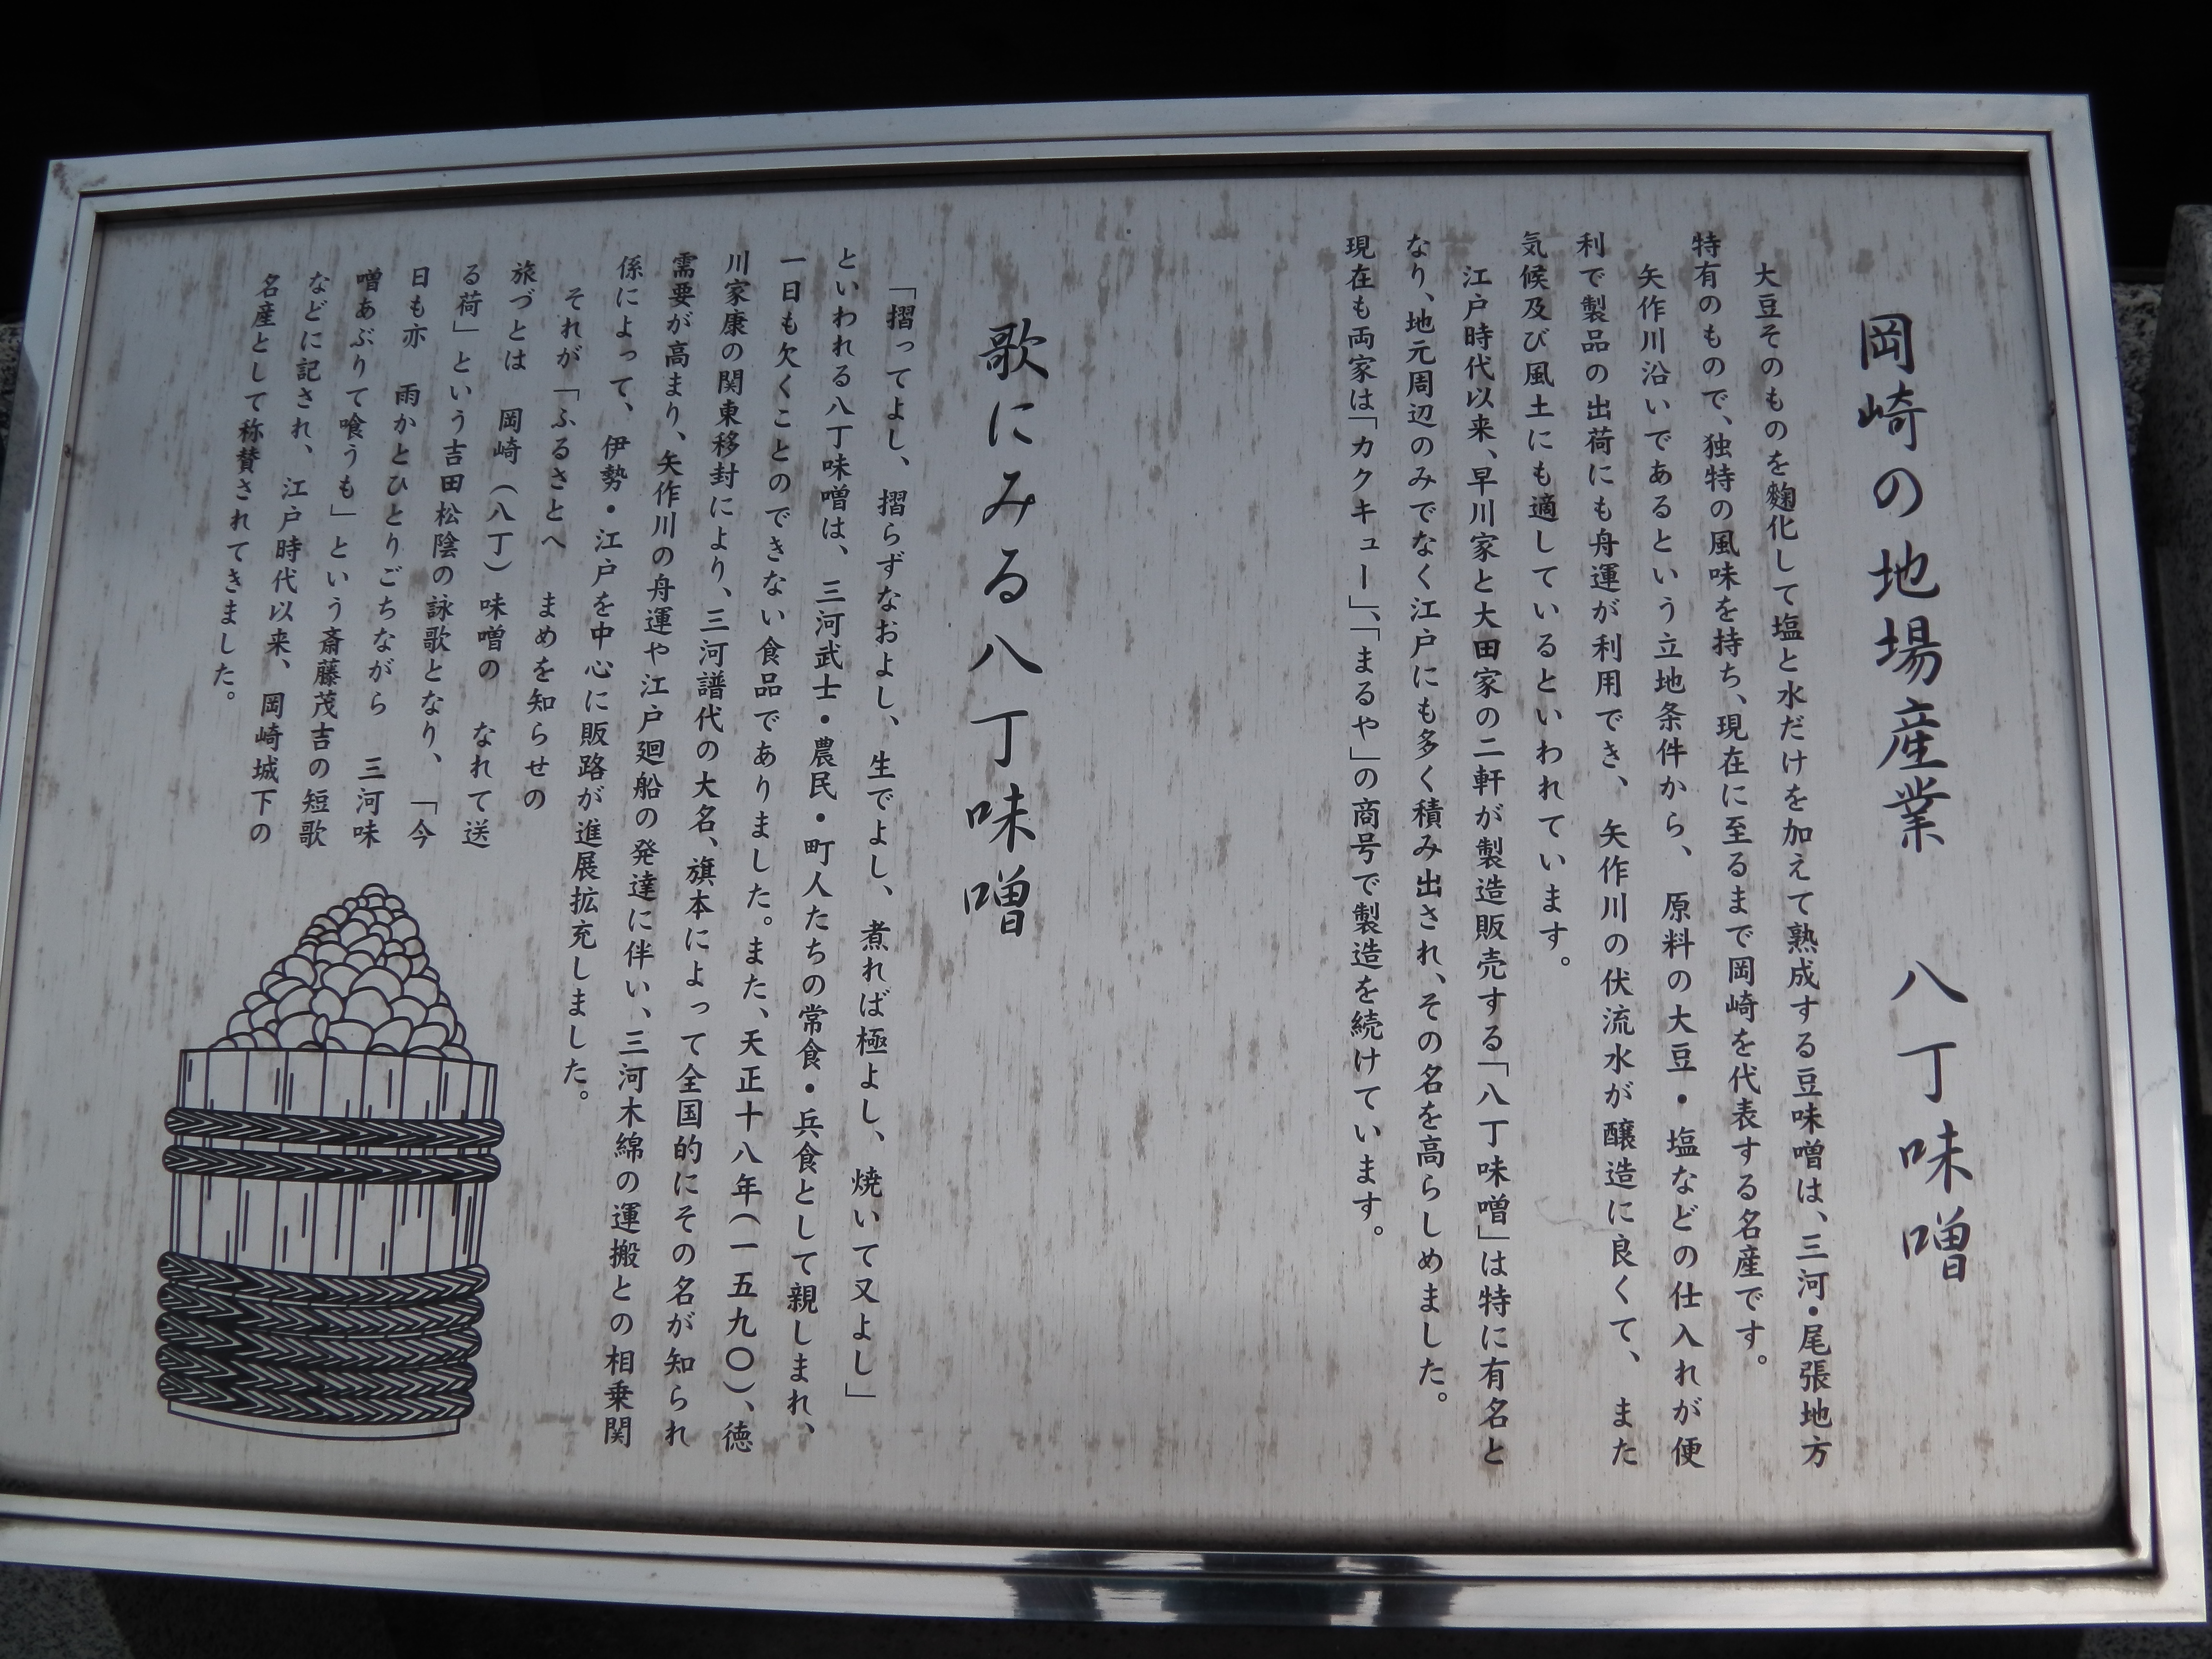 岡崎の地場産業　八丁味噌
大豆そのものを麴化して塩と水だけを加えて熟成する豆味噌は、三河・尾張地方
特有のもので、独特の風味を持ち、現在に至るまで岡崎を代表する名産です。
矢作川沿いであるという立地条件から、原料の大豆・塩などの仕入れが便
利で製品の出荷にも舟運が利用でき、矢作川の伏流水が醸造に良くて、また
気候及び風土にも適しているといわれています。
江戸時代以来、早川家と大田家の二軒が製造販売する「八丁味噌」は特に有名と
なり、地元周辺のみでなく江戸にも多く積み出され、その名を高らしめました。
現在も両家は「カクキュー」、「まるや」の商号で製造を続けています。
歌にみる八丁味噌
「摺ってよし、摺らずなおよし、生でよし、煮れば極よし、焼いて又よし」
といわれる八丁味噌は、三河武士・農民・町人たちの常食・兵食として親しまれ、
一日も欠くことのできない食品でありました。また、天正十八年（一五九〇）、徳
川家康の関東移封により、三河譜代の大名、旗本によって全国的にその名が知られ
需要が高まり、矢作川の舟運や江戸廻船の発達に伴い、三河木綿の運搬との相乗関
係によって、伊勢・江戸を中心に販路が進展拡充しました。
それが「ふるさとへ　まめを知らせの
旅づとは　岡崎（八丁）味噌の　なれて送
る荷」という吉田松陰の詠歌となり、「今
日も亦　雨かとひとりごちながら　三河味
噌あぶりて喰うも」という斎藤茂吉の短歌
などに記され、江戸時代以来、岡崎城下の
名産として称賛されてきました。